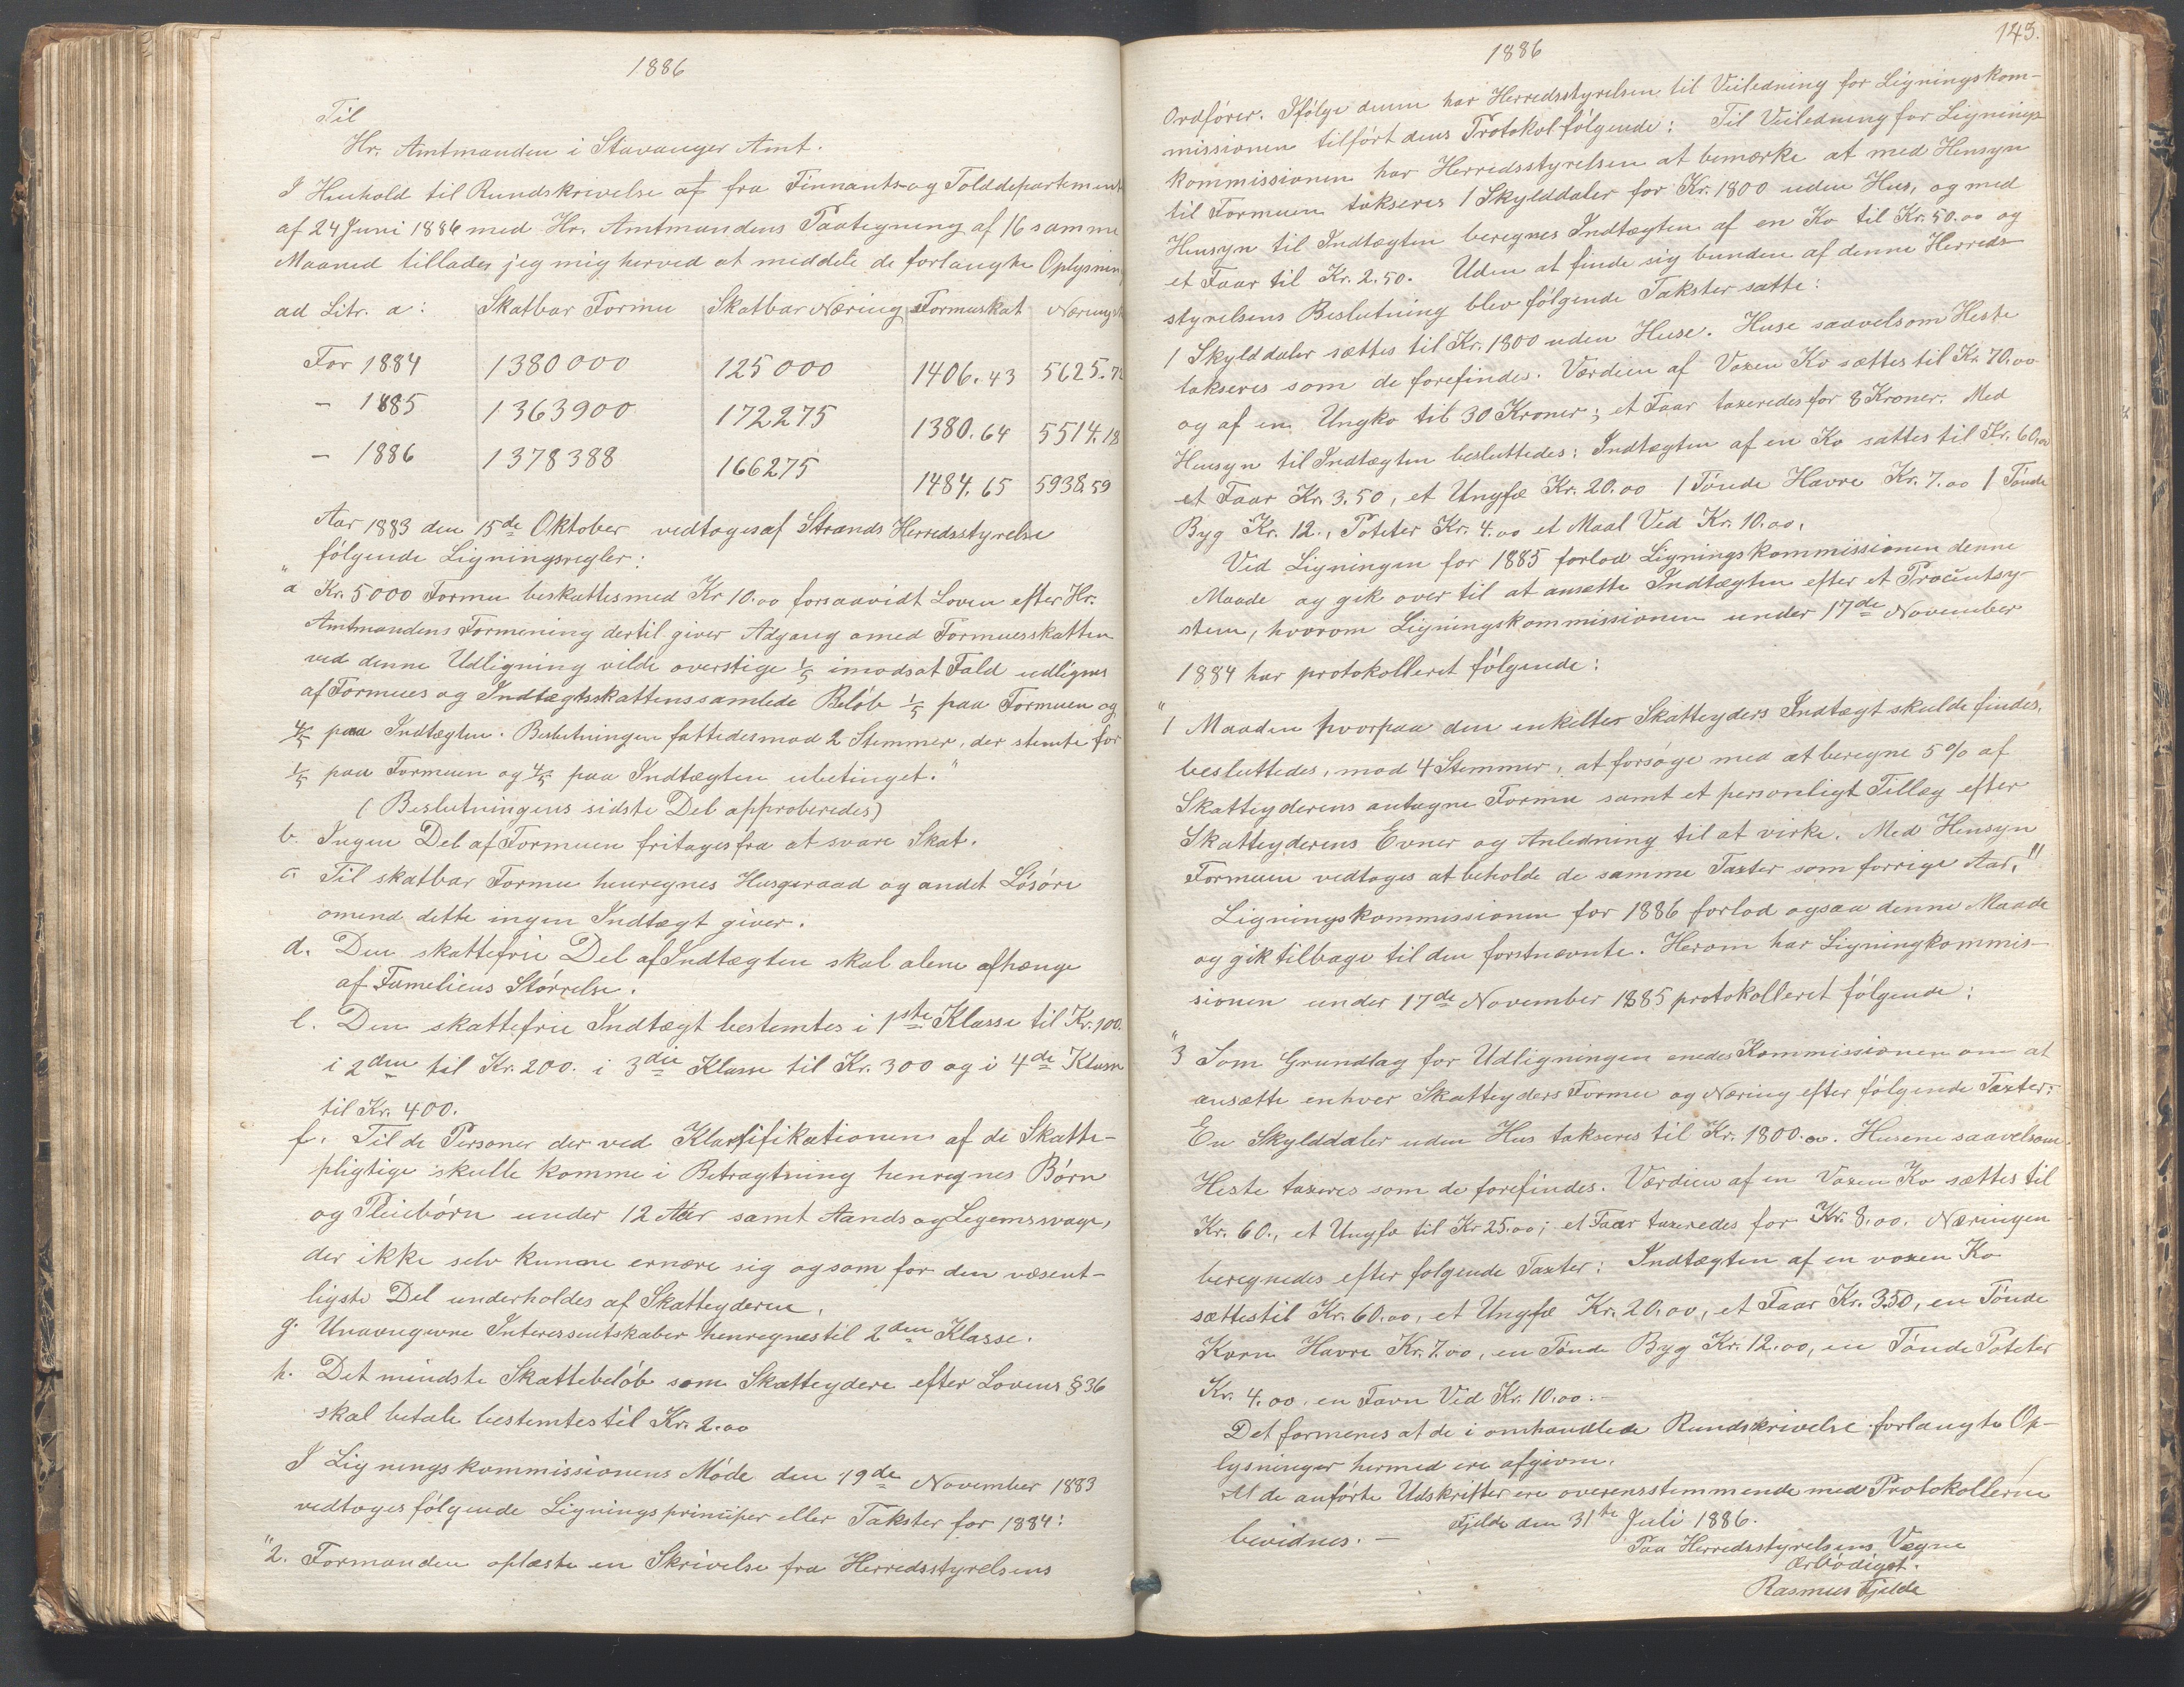 1886
Til
Hr. Amtmanden i Stavanger Amt.
I Henhold til Rundskrivelse af fra Finnants og Tolddepartement
af 24 Juni 1886 med Hr. Amtmandens Paategning af 16 samme
Maaned tillades jeg mig herved at meddele de forlangte Oplysning
ad Litr. a: Skatbar Formu Skatbar Næring Formuskat Nærings
For 1884 1380000 125000 1406.43 5625.72
- 1885 1363900 172275 1380.64 5514.18
- 1886 1378388 166275 1484.65 5938.59
Aar 1883 den 15de Oktober vedtoges af Strands Herredsstyrelse
følgende Ligningsregler:
"a Kr. 5000 Formu beskattes med Kr 10.00 forsaavidt Loven efter Hr.
Amtmandens Formening dertil giver Adgang omed Formuesskatten
ved denne Udligning vilde overstige 1/5 imodsat Fald udlignes
af Formues og Indtægtsskattens samlede Beløb 1/5 paa Formuen og
4/5 paa Indtægten. Beslutningen fattedes mod 2 Stemmer, der stemte for
1/5 paa Formuen og 4/5 paa Indtægten ubetinget."
(Beslutningens sidste Del approberedes)
b. Ingen Del af Formuen fritages fra at svare Skat.
c. Til skatbar Formu henregnes Husgeraad og andet Løsøre
omend dette ingen Indtægt giver.
d. Den skattefrie Del af Indtægten skal alene afhænge
af Fameliens Størrelse.
e. Den skattefrie Indtægt bestemtes i 1ste Klasse til Kr. 100.
i 2den til Kr. 200. i 3die Klasse til Kr. 300 og i 4de Klasse
til Kr. 400.
f. Til de Personer der ved Klassifikationen af de Skatte-
pligtige skulle komme i Betragtning henregnes Børn
og Pleiebørn under 12 Aar samt Aands og Legemssvage,
der ikke selv kunne ernære sig og som for den væsent-
ligste Del underholdes af Skatteyderen.
g. Unavngivne Interessentskaber henregnes til 2den Klasse.
h. Det mindste Skattebeløb som Skatteydere efter Lovens § 36
skal betale bestemtes til Kr. 2.00
I Ligningskommissionens Møde den 19de November 1883
vedtoges følgende Ligningsprinciper eller Takster for 1884:
"2. Formanden oplæste en Skrivelse fra Herredsstyrelsens
143.
1886
Ordfører. Ifølge denne har Herredsstyrelsen til Veiledning for Ligningskom-
missionen tilført dens Protokol følgende: Til Veiledning for Lignings
kommissionen har Herredsstyrelsen at bemærke at med Hensyn
til Formuen takseres 1 Skylddaler for Kr. 1800 uden Hus, og med
Hensyn til Indtægten beregnes Indtægten af en Ko til Kr. 50.00 og
et Faar til Kr. 2.50. Uden at finde sig bunden af denne Herreds-
styrelsens Beslutning blev følgende Takster satte:
1 Skylddaler sættes til Kr. 1800 uden Huse. Huse saavelsom Heste
takseres som de forefindes. Værdien af Voxen Ko sættes til Kr. 70.00
og af en Ungko til 30 Kroner; et Faar taxeredes for 8 Kroner. Med
Hensyn til Indtægten besluttedes: Indtægten af en Ko sattes til Kr. 60.00
et Faar Kr. 3.50, et Ungfæ Kr. 20.00 1 Tønde Havre Kr. 7.00 1 Tønde
Byg Kr. 12., Poteter Kr. 4.00 et Maal Ved Kr. 10.00.
Ved Ligningen for 1885 forlod Ligningskommissionen denne
Maade og gik over til at ansætte Indtægten efter et Procentsy-
stem, hvorom Ligningskommissionen under 17de November
1884 har protokolleret følgende:
"1 Maaden hvorpaa den enkeltes Skatteyders Indtægt skulde findes,
besluttedes, mod 4 Stemmer, at forsøge med at beregne 5 % af
Skatteyderens antagne Formu samt et personligt Tillæg efter
Skatteyderens Evner og Anledning til at virke. Med Hensyn
Formuen vedtoges at beholde de samme Taxter som forrige Aar."
Ligningskommissionen for 1886 forlod ogsaa denne Maade
og gik tilbage til den førstnævnte. Herom har Ligningkommis-
sionen under 17de November 1885 protokolleret følgende:
"3 Som Grundlag for Udligningen enedes Kommissionen om at
ansætte enhver Skatteyders Formu og Næring efter følgende Taxter:
En Skylddaler uden Hus takseres til Kr. 1800.00. Husene saavelsom
Heste taxeres som de forefindes. Værdien af en Voxen Ko sættes til
Kr. 60., et Ungfæ til Kr 25.00; et Faar taxeredes for Kr. 8.00. Næringen
beregnedes efter følgende Taxter: Indtægten af en voxen Ko
sættes til Kr. 60.00, et Ungfæ Kr. 20.00, et Faar Kr. 3.50, en Tønde
Korn Havre Kr. 7.00, en Tønde Byg Kr. 12.00, en Tønde Poteter
Kr. 4.00, en Favn Ved Kr. 10.00.-
Det formenes at de i omhandlede Rundskrivelse forlangte Op-
lysninger hermed ere afgivne.
At de anførte Udskrifter ere overensstemmende med Protokollerne
bevidnes. - Fjelde den 31te Juli 1886.
Paa Herredsstyrelsens Vegne
Ærbødigst.
Rasmus Fjelde